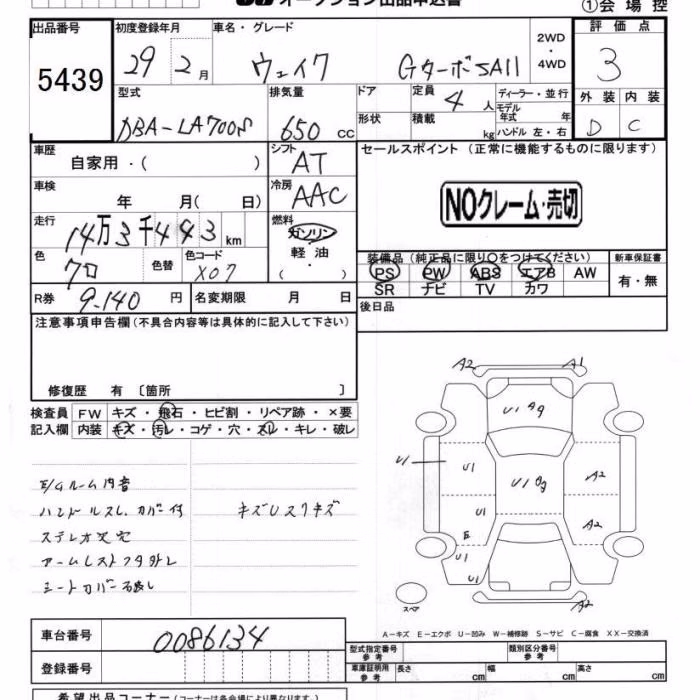 オークション出品申込書
①会場控
出品番号
5439
初度登録年月
29 2月
車名・グレード
ウェイク GターボSAII
2WD
・
4WD
評価点
3
型式
DBA-LA700S
排気量
650 cc
ドア
形状
定員 4人
積載 kg
ディーラー・並行
モデル年式 年
ハンドル 左・右
外装 内装
D C
車歴
自家用・( )
シフト
AT
セールスポイント (正常に機能するものに限ります)
NOクレーム・売切
車検
年 月( 日)
冷房
AAC
走行
14万3千443km
燃料
ガソリン
軽油
( ・ )
色
色替
色コード
X07
装備品 (純正品に限り○をつけてください)
PS PW ABS エアB AW
SR ナビ TV カワ
新車保証書
有・無
R券 9-140円
名変期限 月 日
後日品
注意事項申告欄(不具合内容等は具体的に記入して下さい)
修復歴 有 〔箇所 〕
検査員記入欄
FW キズ・飛石・ヒビ割・リペア跡・×要
内装 キズ・汚レ・コゲ・穴・スレ・キレ・破レ
E/Gルーム内音
ハンドルスレ カバー付
キズUスリキズ
ステレオ欠品
アームレストフタ外レ
シートカバー
A2 A1
U1
U1
U1
A2
U1
A2
E
U1
U1
スペア
A-キズ E-エクボ U-凹み W-補修跡 S-サビ C-腐食 XX-交換済
車台番号
0086134
登録番号
型式指定番号 参考
類別区分番号 参考
車庫証明用 参考
長さ cm
幅 cm
高さ cm
希望出品コーナー(コーナーは各会場により異なります。)